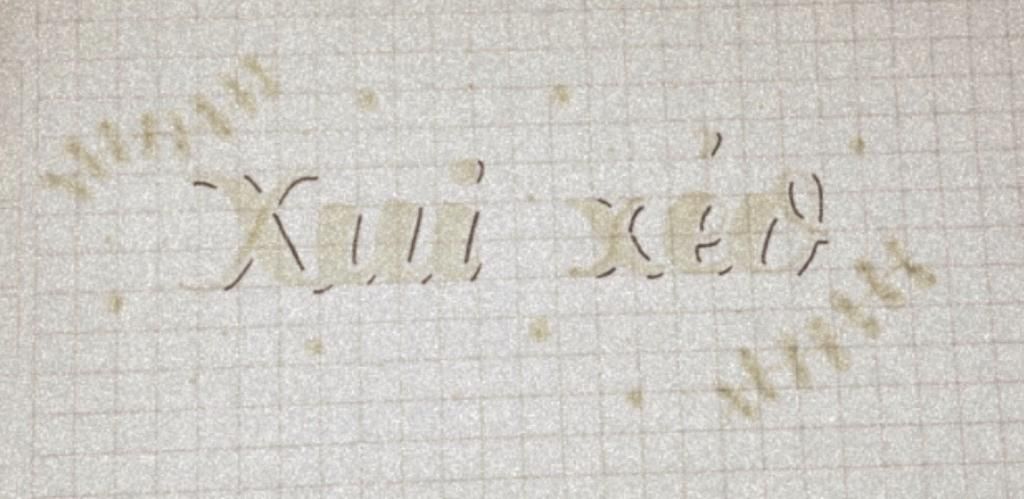 Xui xẻo